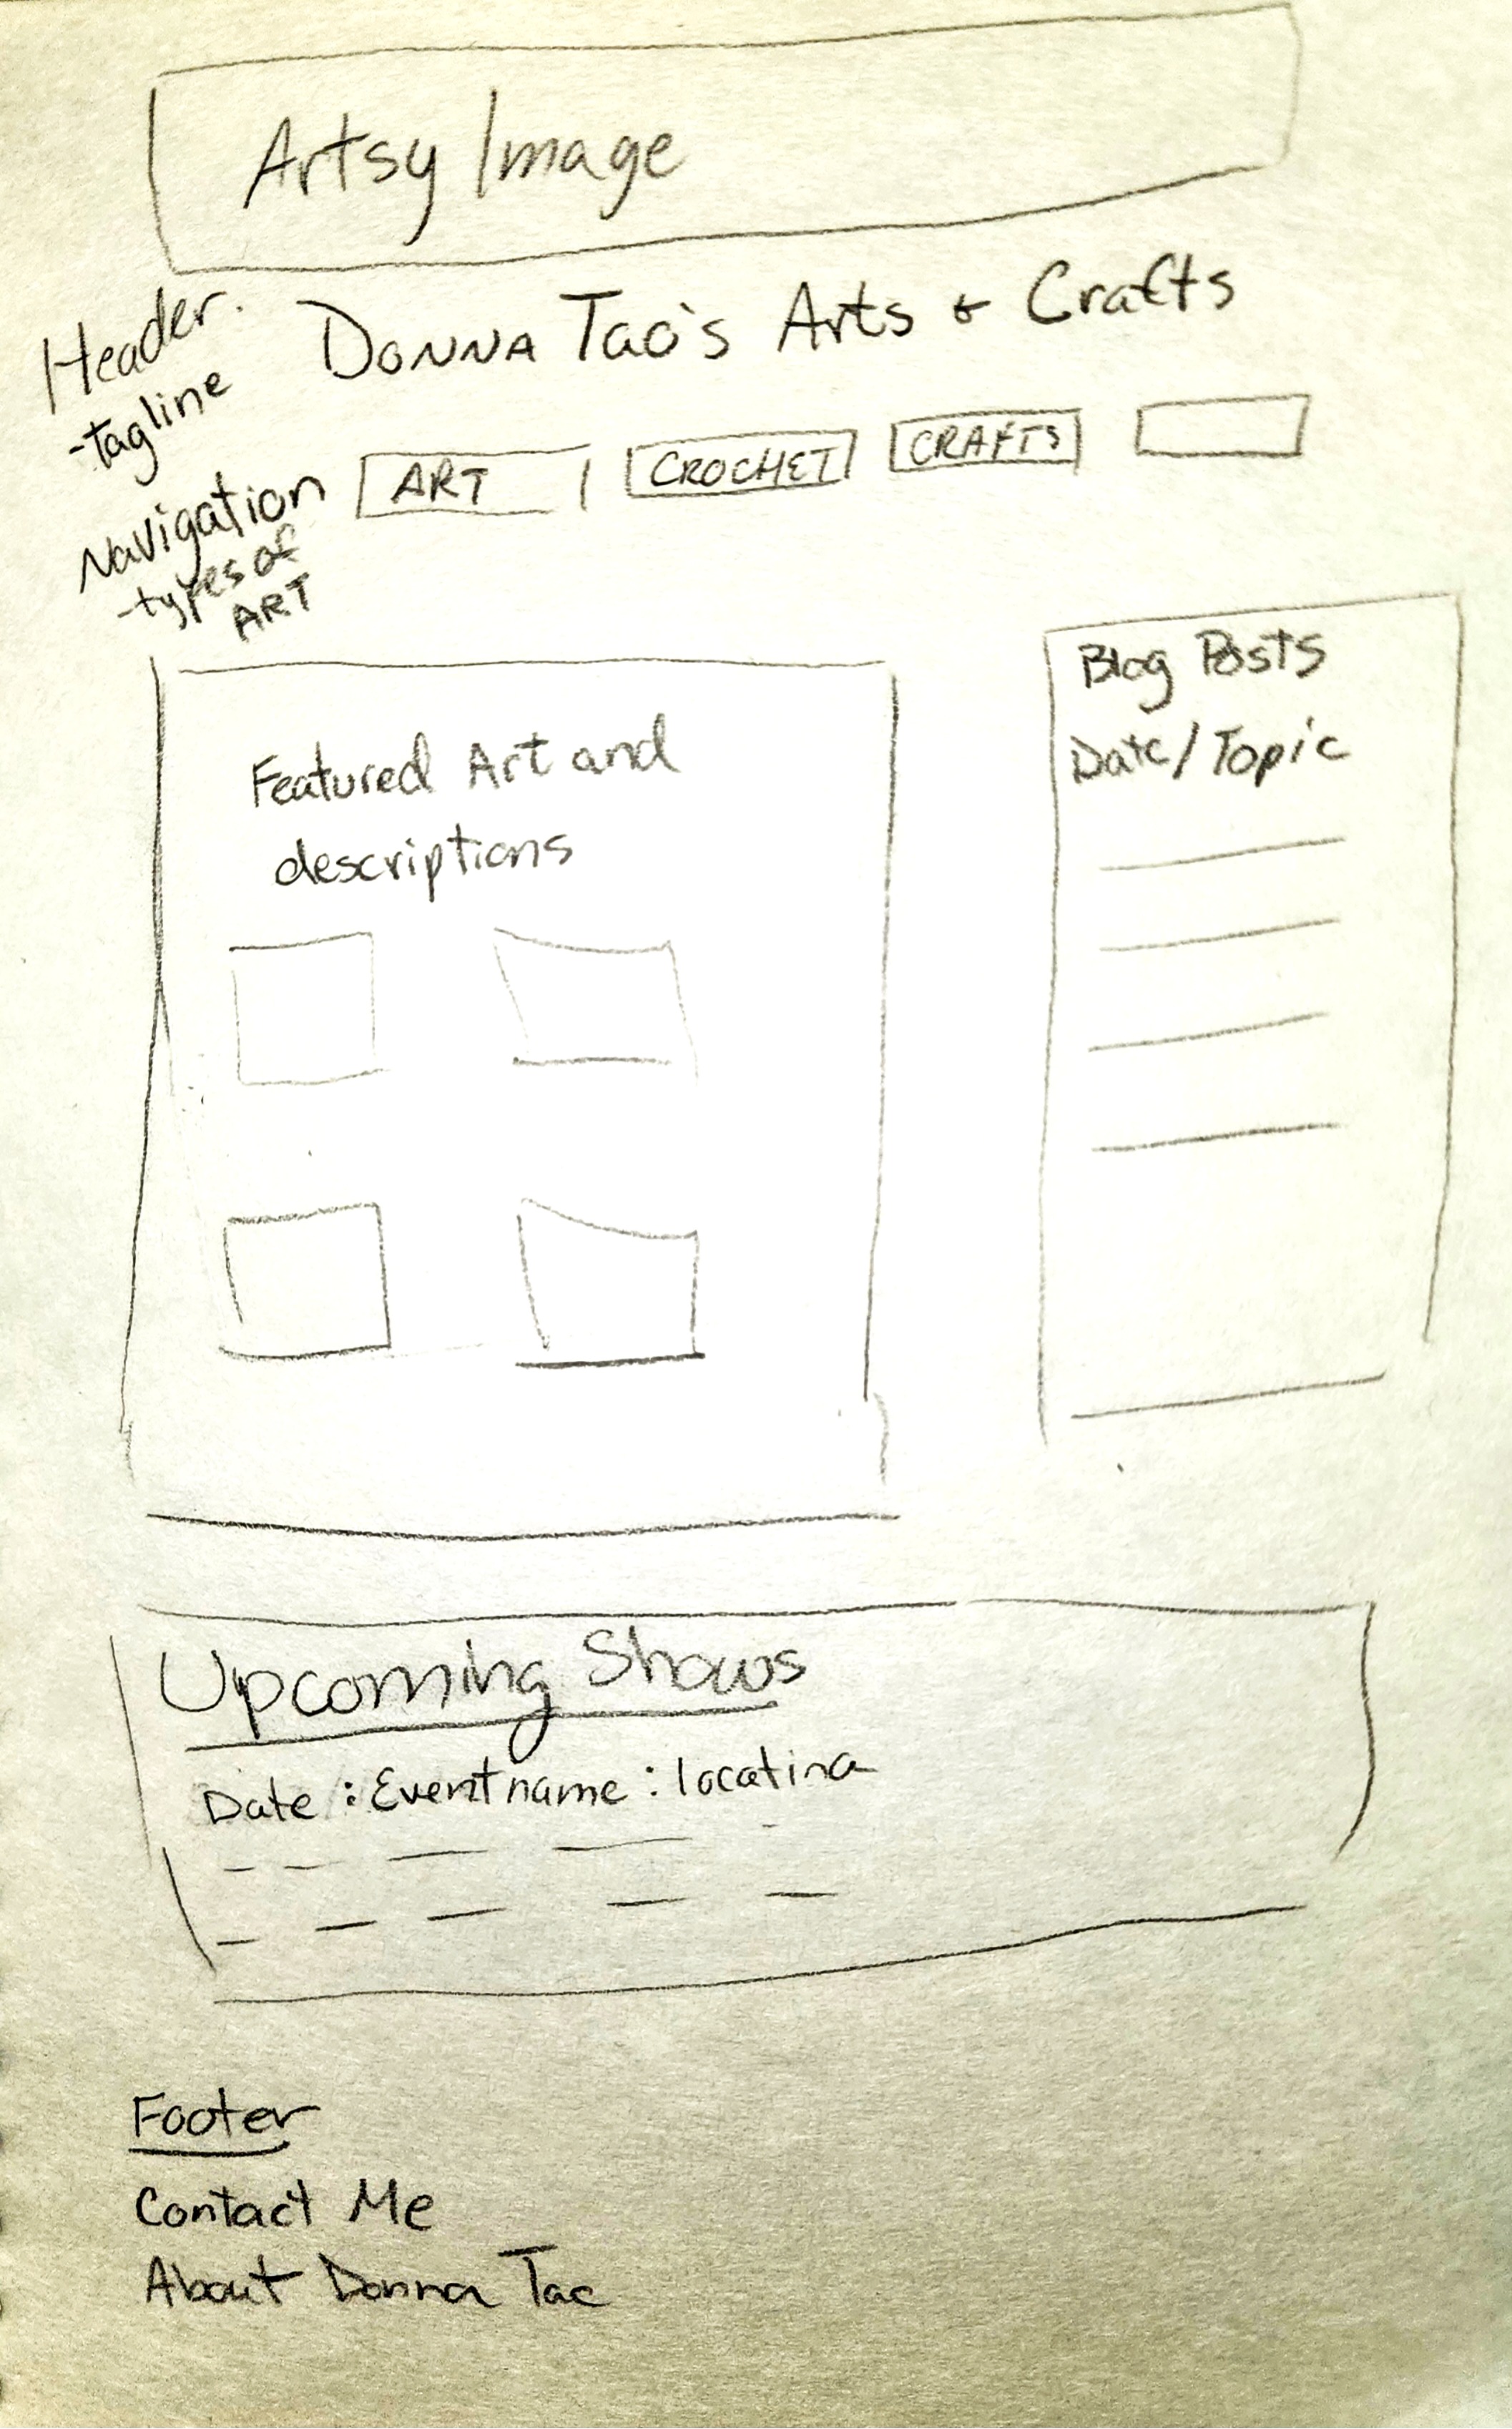 Artsy Image
Header.
-tagline
DONNA Tao's Arts & Crafts
Navigation
-types of
ART
ART
CROCHET
CRAFTS
Featured Art and
descriptions
Blog Posts
Date/Topic
Upcoming Shows
Date : Event name : location
Footer
Contact Me
About Donna Tao